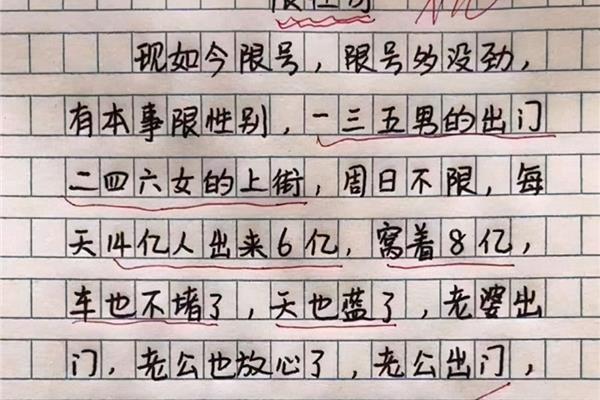 限性别
现如今限号，限号多没劲，
有本事限性别，一三五男的出门
二四六女的上街，周日不限，每
天14亿人出来6亿，窝着8亿，
车也不堵了，天也蓝了，老婆出
门，老公也放心了，老公出门，